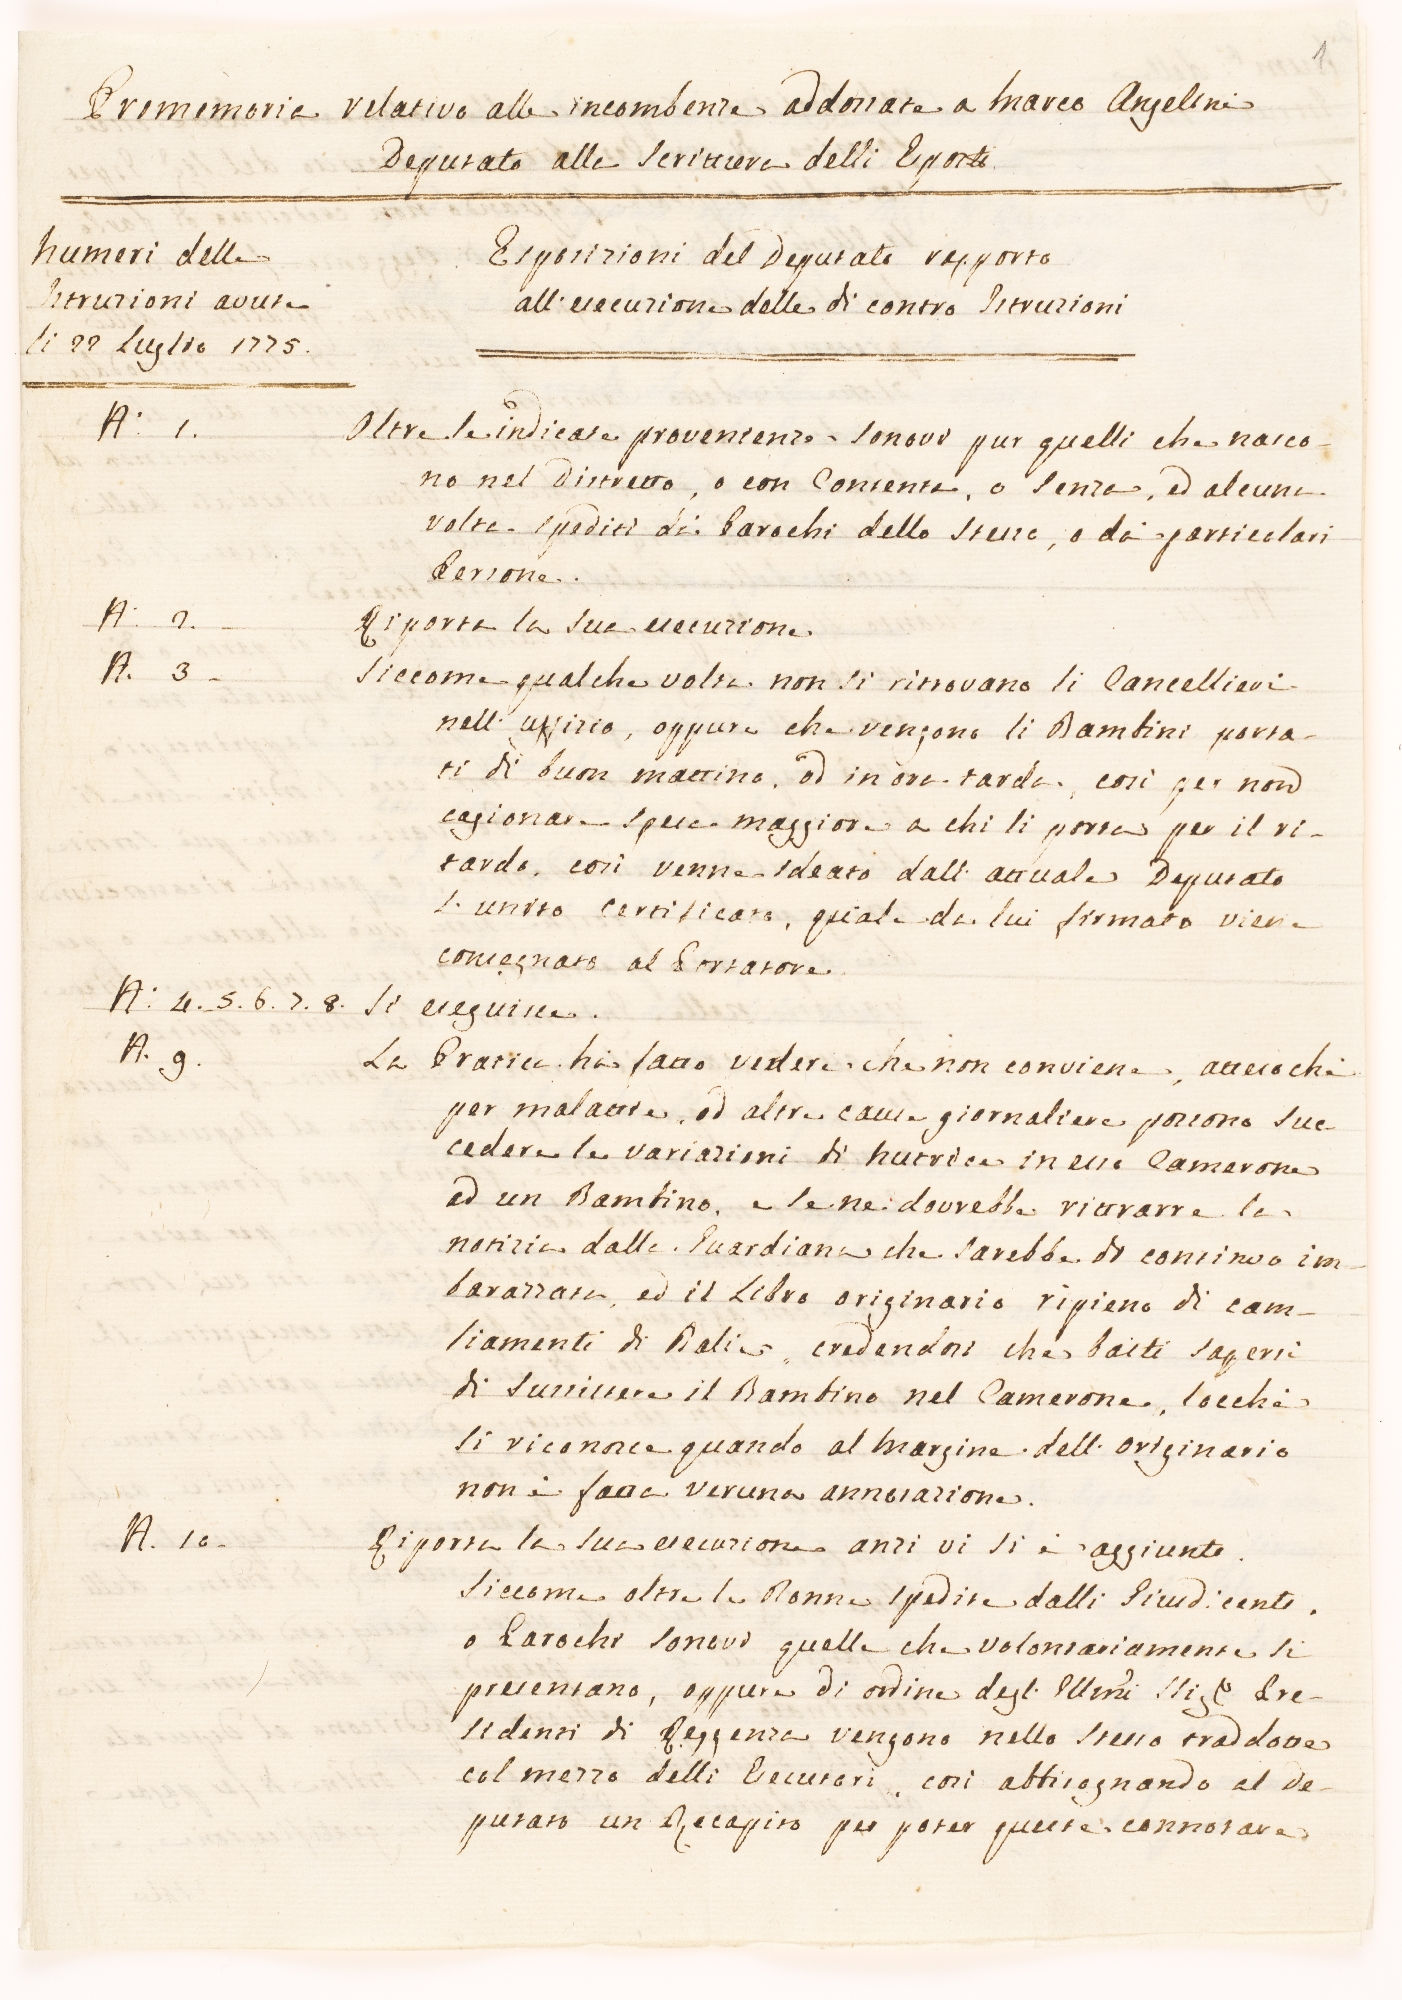 1
Promemoria relativo alle incombenze addossate a Marco Angelini
Deputato alla Scrittura delli Eposti
Numeri delle
Istruzioni avute
li 22 Luglio 1775.
Esposizioni del Deputato rapporto
all'esecuzione delle di contro Istruzioni
N.° 1. Oltre le indicate provenienze sonovi pur quelli che nasco-
no nel Distretto, o con Consenso, o Senza, ed alcune
volte spediti da Parochi dello stesso, o da particolari
Persone.
N.° 2. Riporta la sua esecuzione.
N. 3 - Siccome qualche volta non si ritrovano li Cancellieri
nell'uffizio, oppure che vengono li Bambini porta-
ti di buon mattino, od in ora tarda, così per non
cagionare spese maggiore a chi li porta per il ri-
tardo, così venne ideato dall'attuale Deputato
l'unito Certificato, quale da lui firmato viene
consegnato al Portatore
N.° 4. 5. 6. 7. 8. Si eseguisce.
N. 9. La Pratica ha fatto vedere che non conviene, attesoche
per malattie, od altre cause giornaliere possono suc
cedere le variazioni di Nutrice in esso Camerone
ad un Bambino, e se ne dovrebbe ritrarre la
notizia dalla Guardiana che sarebbe di continuo im-
barazzata, ed il Libro originario ripieno di cam-
biamenti di Balie, credendosi che basti sapersi
di sussistere il Bambino nel Camerone, locchè
si riconosce quando al Margine dell'originario
non è fatta veruna annotazione.
N. 10. Riporta la sua esecuzione anzi vi si è aggiunto.
Siccome oltre le Donne spedite dalli Giudicenti,
o Parochi sonovi quelle che volontariamente si
presentano, oppure di ordine degl'Illmi Sigi Pre-
sidenti di Reggenza vengono nello stesso traddotte
col mezzo delli Esecutori, così abbisognando al De-
putato un Recapito per poter queste connotare